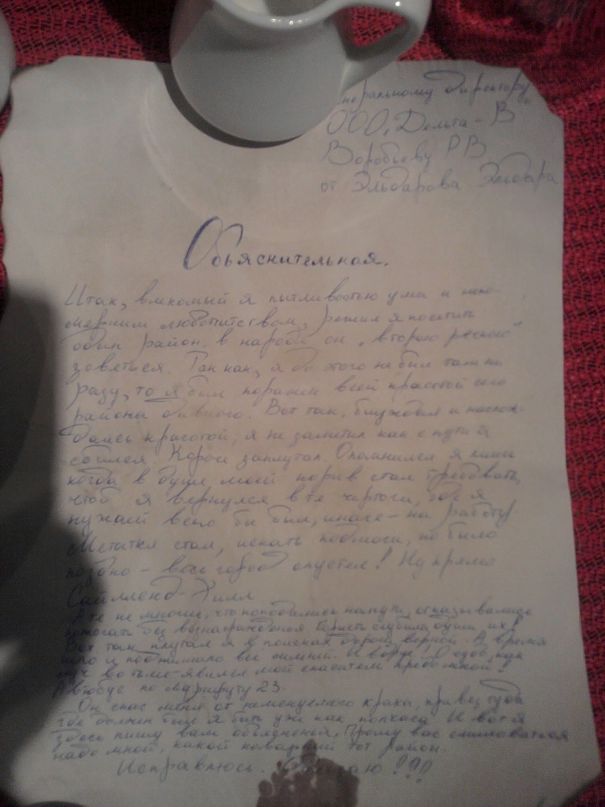 неральному директору
ООО „Дельта-В"
Воробьеву РВ
от Эльдарова Эльдара
Обьяснительная.
Итак, влекомый я пытливостью ума и непо-
мерним любопытством, решил я посетить
один район. в народе он „второю речкой"
зоветься. Так как, я до этого не был там ни
разу, то я был поражен всей красотой сего
района дивного. Вот так, блуждая и наслож-
даясь красотой, я не заметил как с пути я
сбился. Короче заплутал. Опомнился я лишь
когда в душе моей порыв стал требовать,
чтоб я вернулся в те чертоги, где я
нужней всего бы был, иначе - на работу
Метатся стал, искать подмоги, но было
поздно - весь город опустел! Ну прямо
Сайлленд-Хилл
А те не многие, что попадались на пути, отказывались
помогать без вознаграждения. сгубила одни их!
Вот так плутал я в поисках дороги верной. А время
шло и поджимало все сильней. И вдруг! О чудо, как
луч во тьме явился мой спаситель предо мной!
Автобус по маршруту 23.
Он спас меня от неминуемого краха, привез туда
где должен был я быть уже как полчаса. И вот я
здесь пишу вам обьяснения. Прошу вас смиловаться
надо мной, какой коварный тот район.
Исправлюсь. !!!